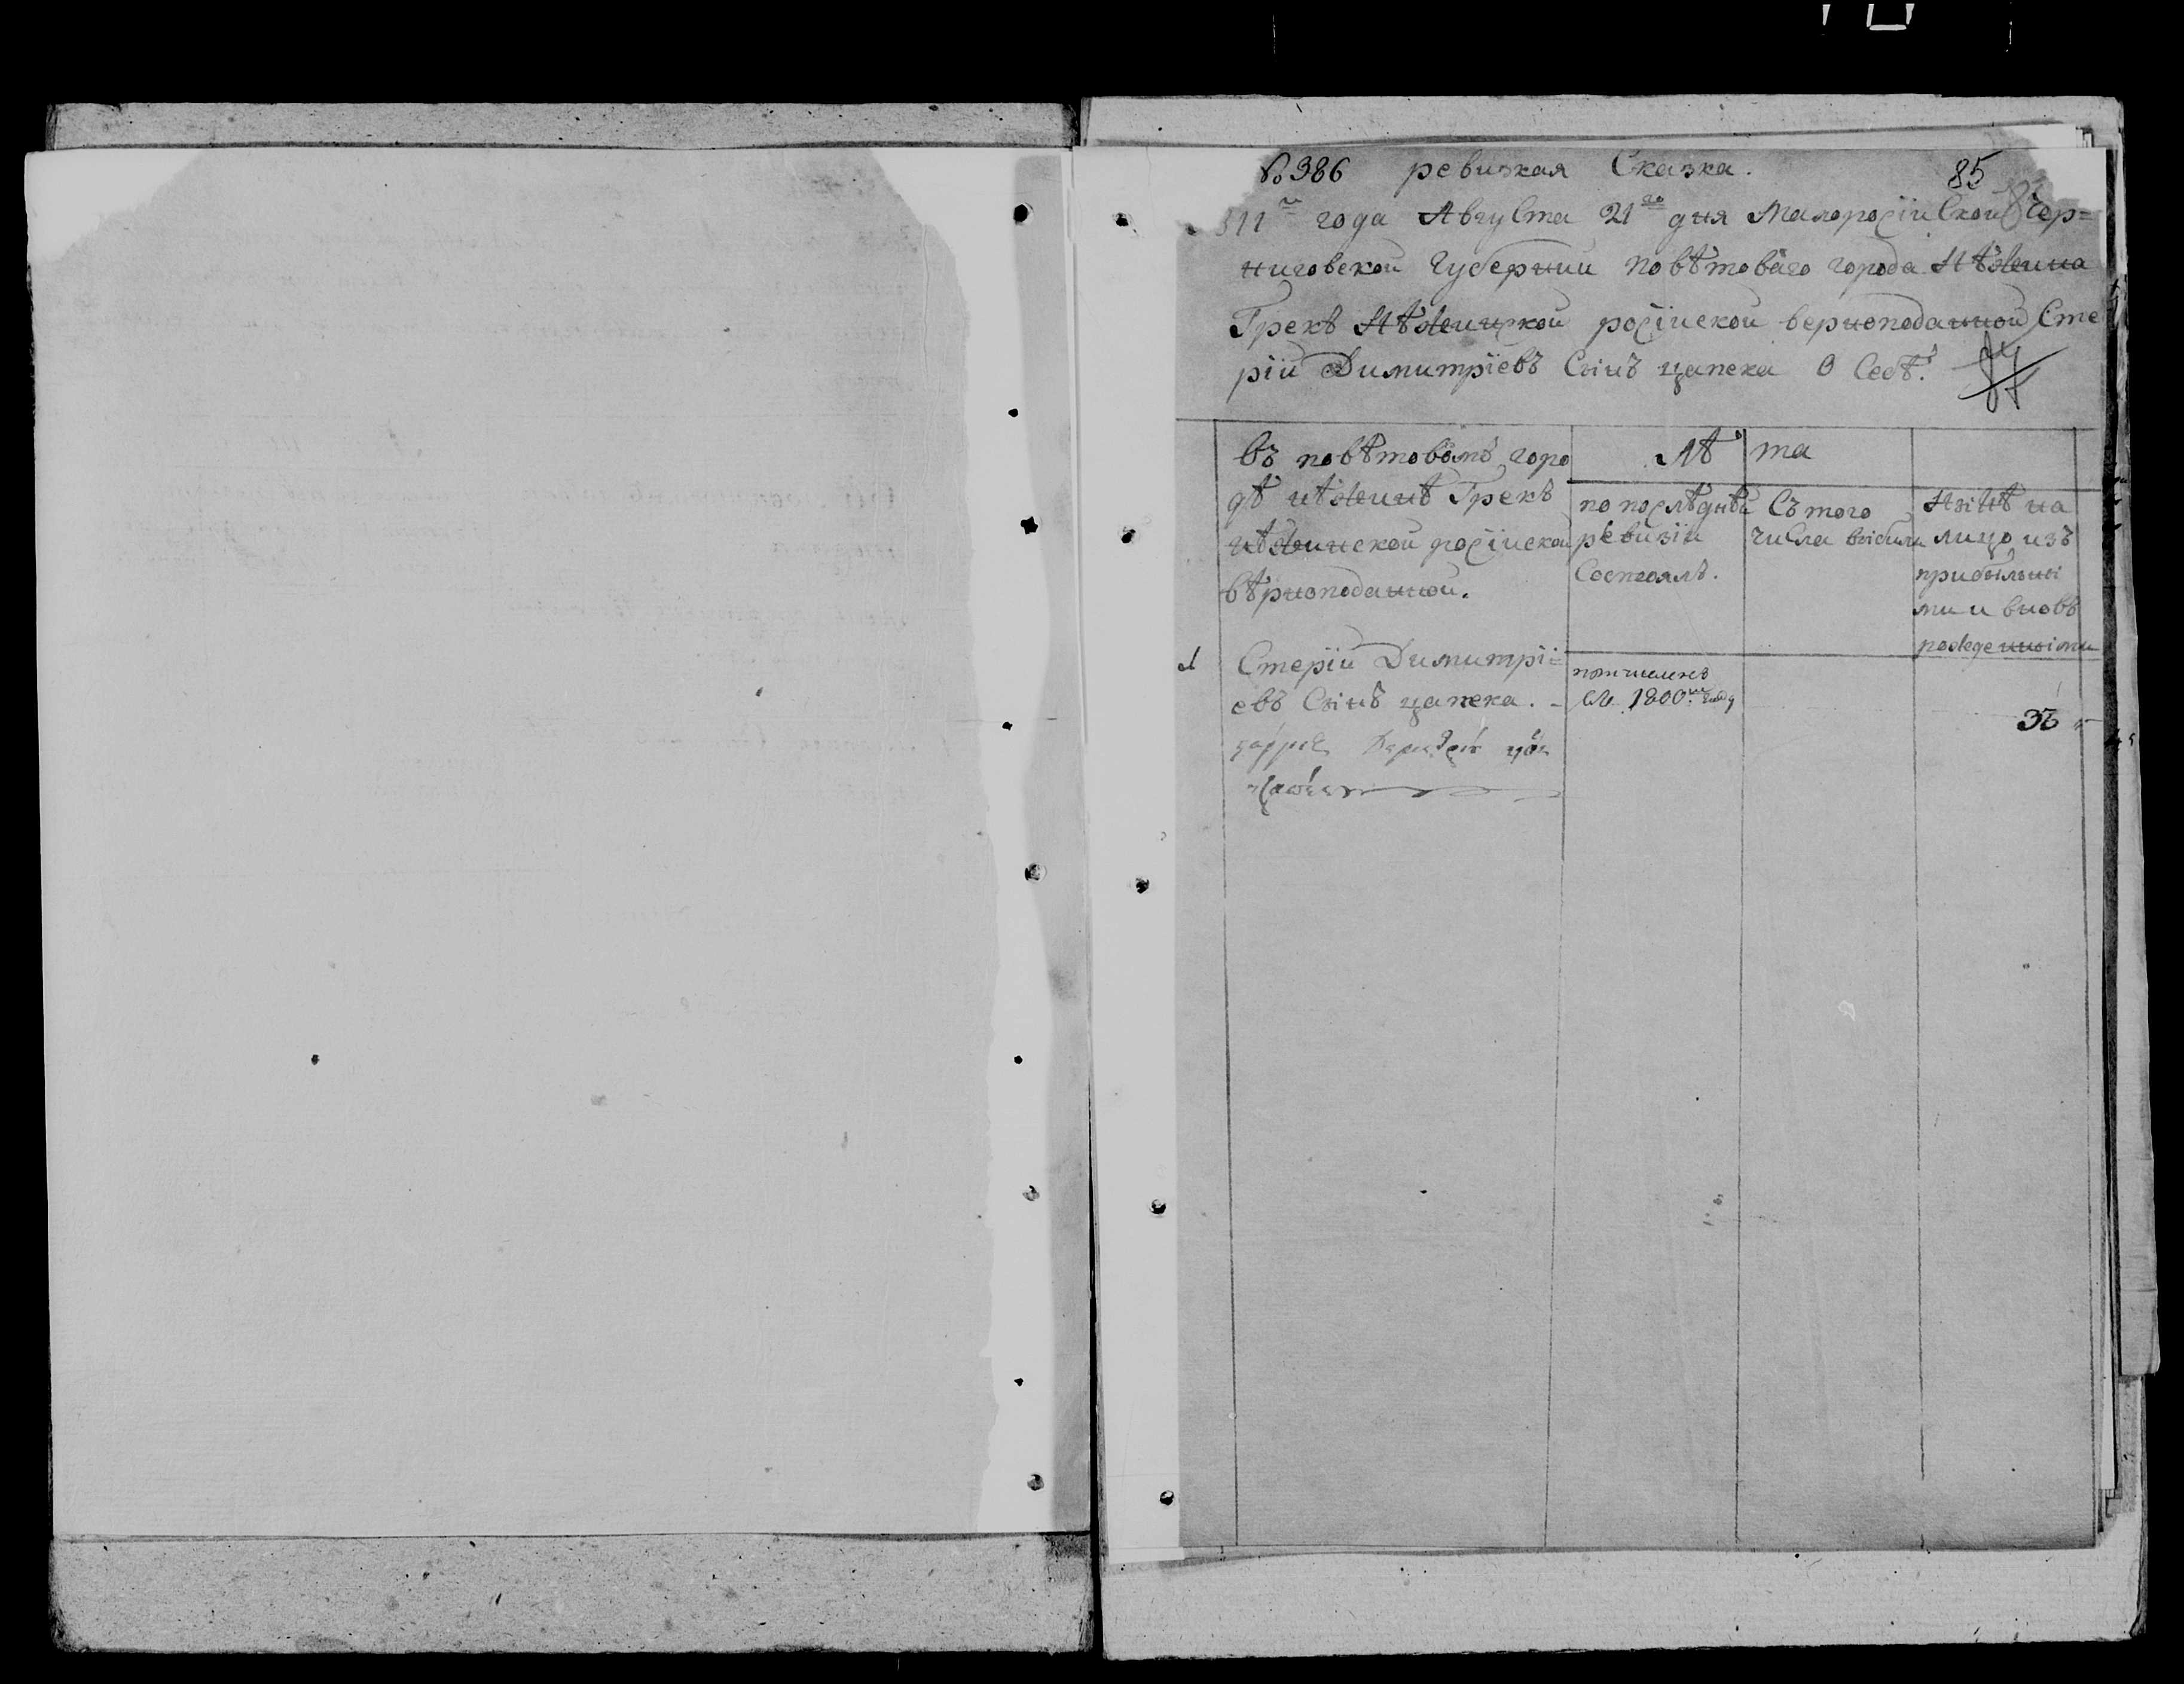 № 386 ревизкая Сказка. 85
811го года Августа 21го дня Малоросіиской Чер=
ниговской Губернии поветоваго города Нѣжина
Грекъ Нѣжинской росіиской верноподанной Сте
рій Димитріевъ Сынъ цапека О Себѣ.
Въ повѣтовомъ горо
дѣ нѣжинѣ Грекъ
нѣжинской росіиской
вѣрноподанной.
Лѣ та
по послѣднѣй
ревизіи
Состоялъ.
Съ того
числа выбыли
Нынѣ на
лицо изъ
прибылыи
ми и вновъ
рожденными
1 Стерій Димитрі=
евъ Сынъ цапека.
причисленъ
съ 1800го году
36